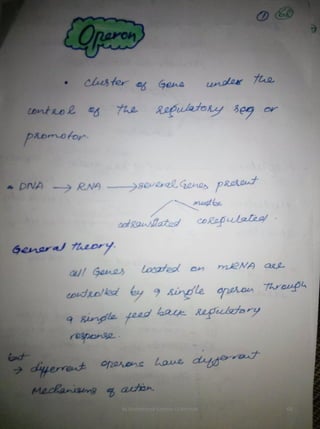 ① 68
Operon
• cluster of Gene under the
control of the regulatory seq or
promotor.
• DNA → RNA → several Genes present
must be
cotranslated coregulated.
General theory.
all Genes located on mRNA are
controlled by a single operon through
a single feed back regulatory
response.
but
→ different operons have different
Mechanisms of action